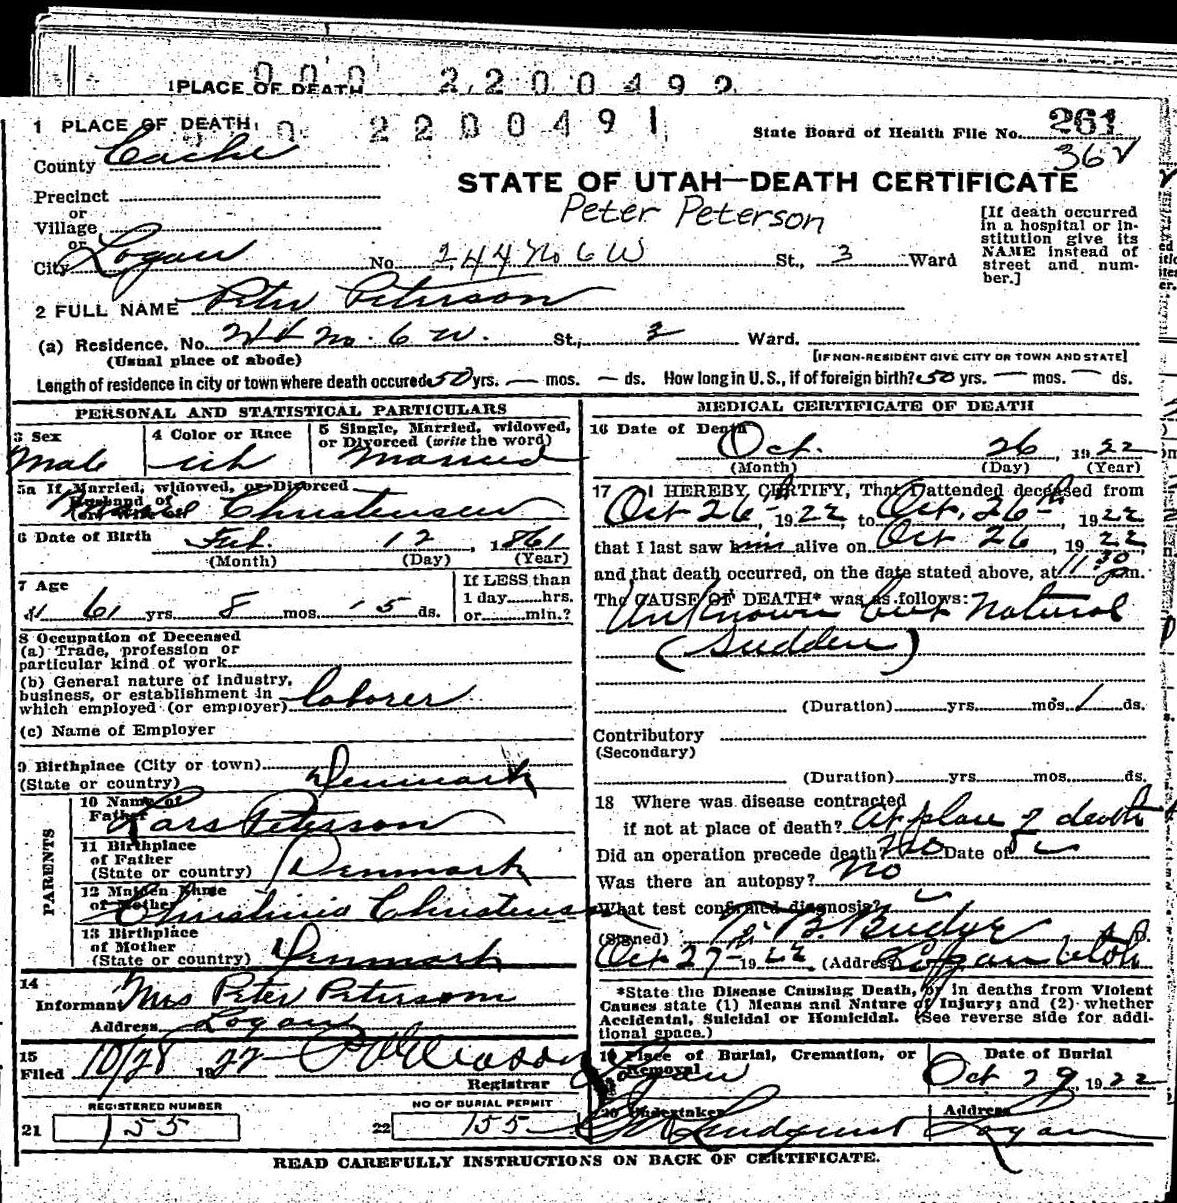 1 PLACE OF DEATH
000 2200492
1 PLACE OF DEATH
2200491
State Board of Health File No. 261
362
County Cache
STATE OF UTAH—DEATH CERTIFICATE
Peter Peterson
Precinct
or
Village
or
City Logan No. 244 No 6 W St., 3 Ward
[If death occurred in a hospital or institution give its NAME instead of street and number.]
2 FULL NAME Peter Peterson
(a) Residence. No. 244 No. 6 W. St., 3 Ward.
(Usual place of abode) [IF NON-RESIDENT GIVE CITY OR TOWN AND STATE]
Length of residence in city or town where death occured 50 yrs. — mos. — ds. How long in U.S., if of foreign birth? 50 yrs. — mos. — ds.
PERSONAL AND STATISTICAL PARTICULARS
3 Sex
Male
4 Color or Race
5 Single, Married, widowed, or Divorced (write the word)
Married
5a If Married, widowed, or Divorced
Husband of
(or) Wife of
Christensen
6 Date of Birth Feb. 12, 1861
(Month) (Day) (Year)
7 Age
61 yrs. 8 mos. 15 ds.
If LESS than
1 day......hrs.
or......min.?
8 Occupation of Deceased
(a) Trade, profession or
particular kind of work
(b) General nature of industry,
business, or establishment in
which employed (or employer) laborer
(c) Name of Employer
9 Birthplace (City or town)
(State or country) Denmark
PARENTS
10 Name of
Father Lars Peterson
11 Birthplace
of Father
(State or country) Denmark
12 Maiden Name
of Mother Christina Christensen
13 Birthplace
of Mother
(State or country) Denmark
14
Informant Mrs Peter Peterson
Address Logan
15
Filed 10/28 1922
Registrar
REGISTERED NUMBER
21 155
NO OF BURIAL PERMIT
22 155
MEDICAL CERTIFICATE OF DEATH
16 Date of Death
Oct. 26, 1922
(Month) (Day) (Year)
17 I HEREBY CERTIFY, That I attended deceased from
Oct 26th, 1922, to Oct. 26th, 1922
that I last saw him alive on Oct 26, 1922
and that death occurred, on the date stated above, at 11:30 pm.
The CAUSE OF DEATH* was as follows:
Unknown but Natural
(Sudden)
(Duration)......yrs......mos. 1 ds.
Contributory
(Secondary)
(Duration)......yrs......mos......ds.
18 Where was disease contracted
if not at place of death? At place of death
Did an operation precede death? No Date of
Was there an autopsy? No
What test confirmed diagnosis?
(Signed) B. Budge
Oct 27 1922 (Address) Logan Utah
*State the Disease Causing Death, or in deaths from Violent
Causes state (1) Means and Nature of Injury; and (2) whether
Accidental, Suicidal or Homicidal. (See reverse side for addi-
tional space.)
19 Place of Burial, Cremation, or
Removal
Logan
Date of Burial
Oct 29, 1922
20 Undertaker
Lindquist
Address
Logan
READ CAREFULLY INSTRUCTIONS ON BACK OF CERTIFICATE.